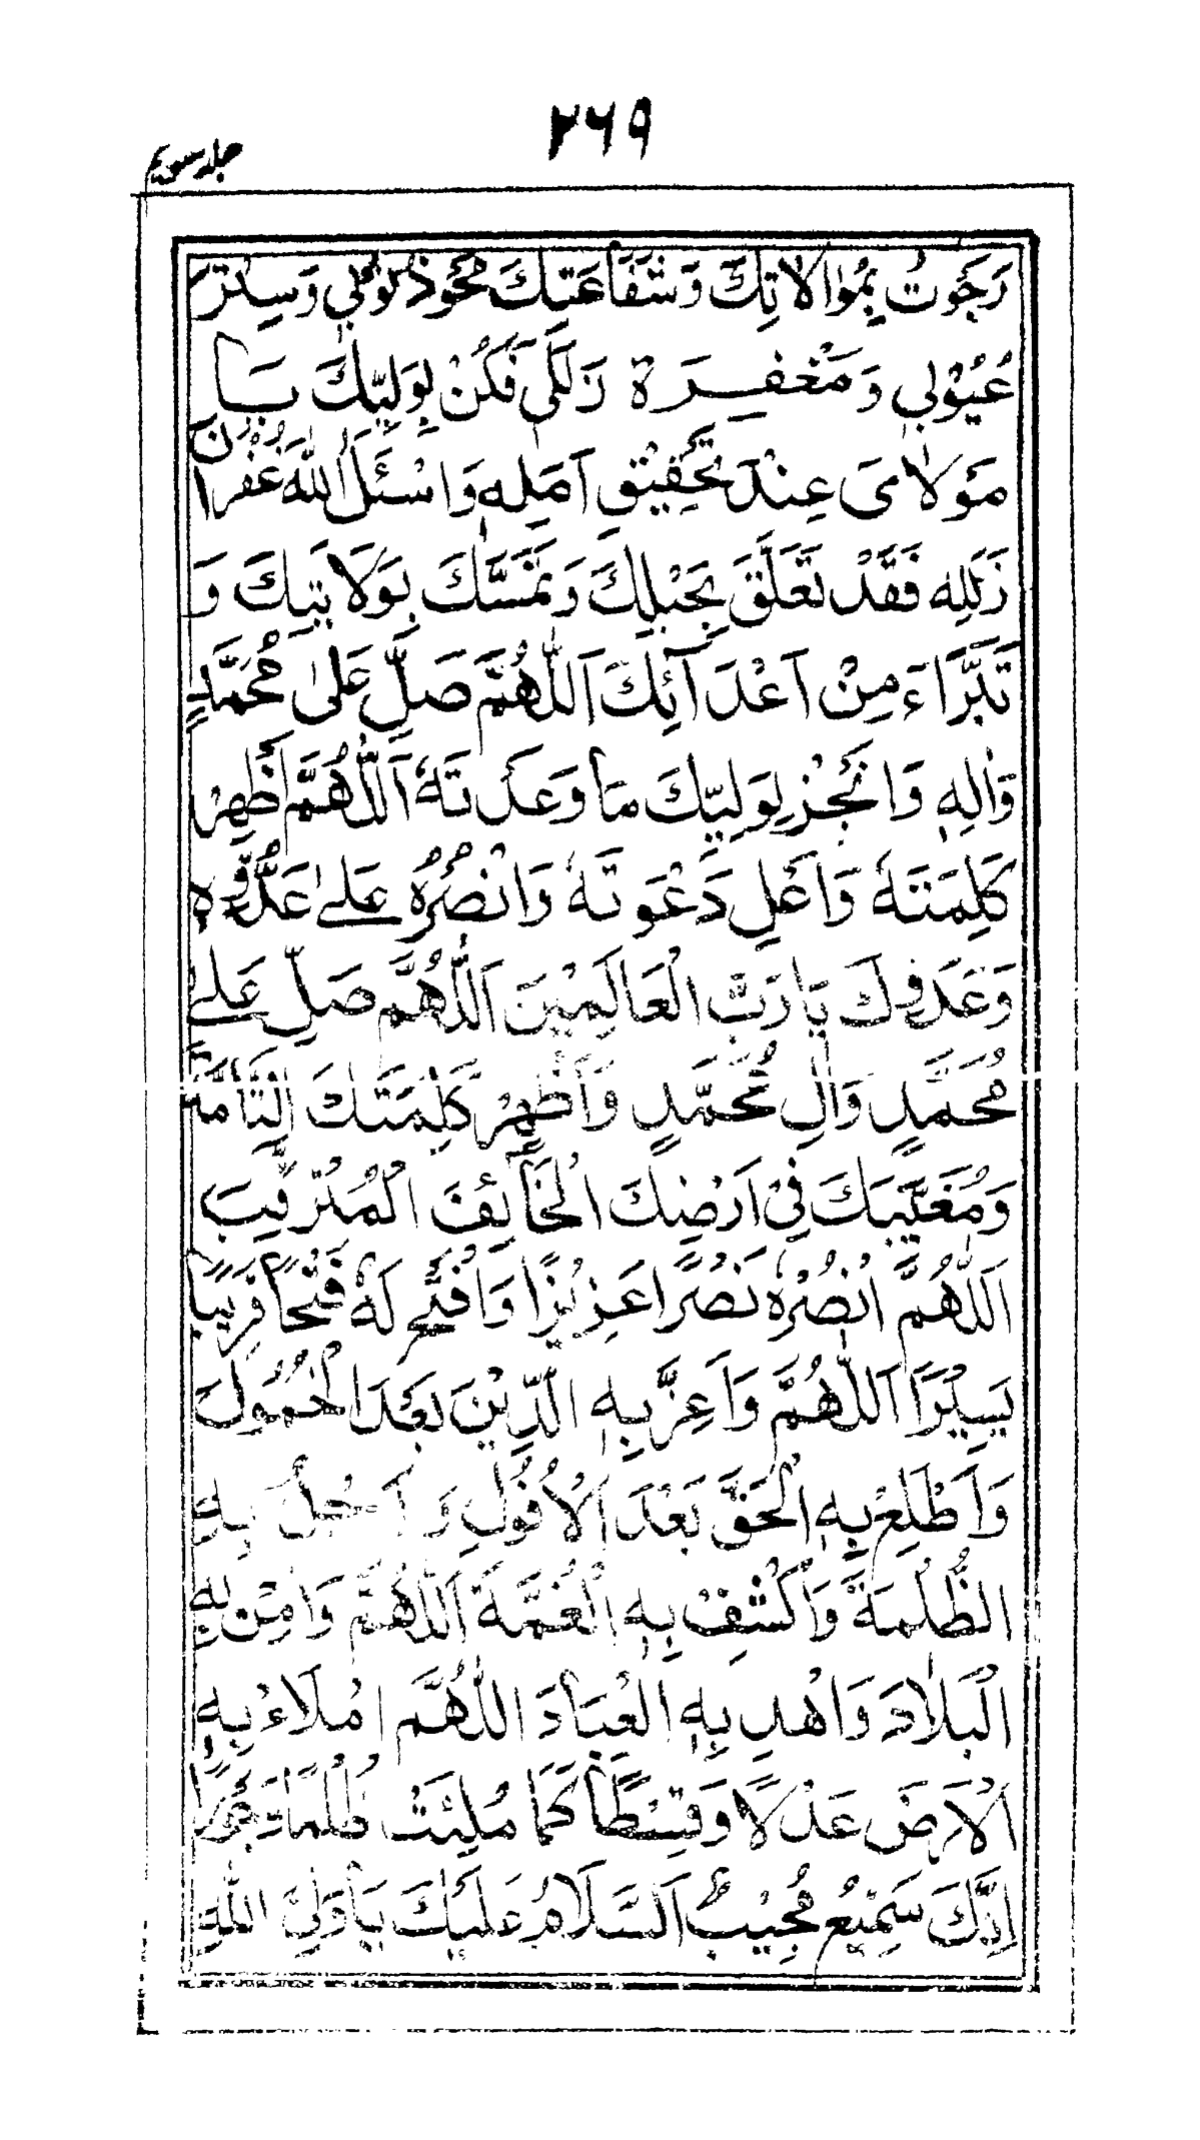 ۲۶۹
جلد سویم
رَجَوْتُ بِمُوَالَاتِكَ وَشَفَاعَتِكَ مَحْوَ ذُنُوْبِیْ وَسِتْرَ
عُيُوْبِیْ وَمَغْفِرَةَ زَلَلِیْ فَكُنْ لِوَلِيِّكَ يَا
مَوْلَایَ عِنْدَ تَحْقِيْقِ اَمَلِهٖ وَاسْئَلِ اللّٰهَ غُفْرَانَ
زَلَلِهٖ فَقَدْ تَعَلَّقَ بِحَبْلِكَ وَتَمَسَّكَ بِوَلَايَتِكَ وَ
تَبَرَّاءَ مِنْ اَعْدَآئِكَ اَللّٰهُمَّ صَلِّ عَلٰى مُحَمَّدٍ
وَاٰلِهٖ وَاَنْجِزْ لِوَلِيِّكَ مَا وَعَدْتَهٗ اَللّٰهُمَّ اَظْهِرْ
كَلِمَتَهٗ وَاَعْلِ دَعْوَتَهٗ وَانْصُرْهُ عَلٰے عَدُوِّهٖ
وَعَدُوِّكَ يَا رَبَّ الْعَالَمِيْنَ اَللّٰهُمَّ صَلِّ عَلٰے
مُحَمَّدٍ وَاٰلِ مُحَمَّدٍ وَاَظْهِرْ كَلِمَتَكَ التَّآمَّةَ
وَمُغَيَّبَكَ فِیْ اَرْضِكَ الْخَآئِفَ الْمُتَرَقِّبَ
اَللّٰهُمَّ انْصُرْهُ نَصْرًا عَزِيْزًا وَافْتَحْ لَهٗ فَتْحًا قَرِيْبًا
يَسِيْرًا اَللّٰهُمَّ وَاَعِزَّ بِهِ الدِّيْنَ بَعْدَ الْخُمُوْلِ
وَاَطْلِعْ بِهِ الْحَقَّ بَعْدَ الْاُفُوْلِ وَاَجْلِ بِهِ
الظُّلْمَةَ وَاكْشِفْ بِهِ الْغُمَّةَ اَللّٰهُمَّ وَاٰمِنْ بِهِ
الْبَلَادَ وَاهْدِ بِهِ الْعِبَادَ اللّٰهُمَّ امْلَاءْ بِهِ
الْاَرْضَ عَدْلًا وَقِسْطًا كَمَا مُلِئَتْ ظُلْمًا وَجَوْرًا
اِنَّكَ سَمِيْعٌ مُجِيْبٌ اَلسَّلَامُ عَلَيْكَ يَا وَلِیَّ اللّٰهِ